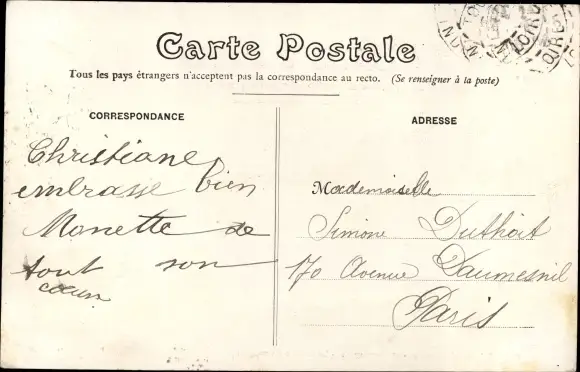 Carte Postale
Tous les pays étrangers n'acceptent pas la correspondance au recto. (Se renseigner à la poste)
CORRESPONDANCE
Christiane
embrasse bien
Manette de
tout son
cœur
ADRESSE
Mademoiselle
Simone Duthoit
170 Avenue Daumesnil
Paris